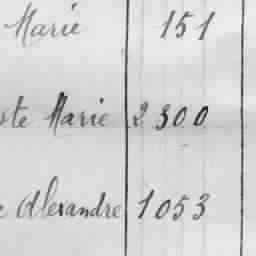 Marie 151
ste Marie 2 300
e Alexandre 1053